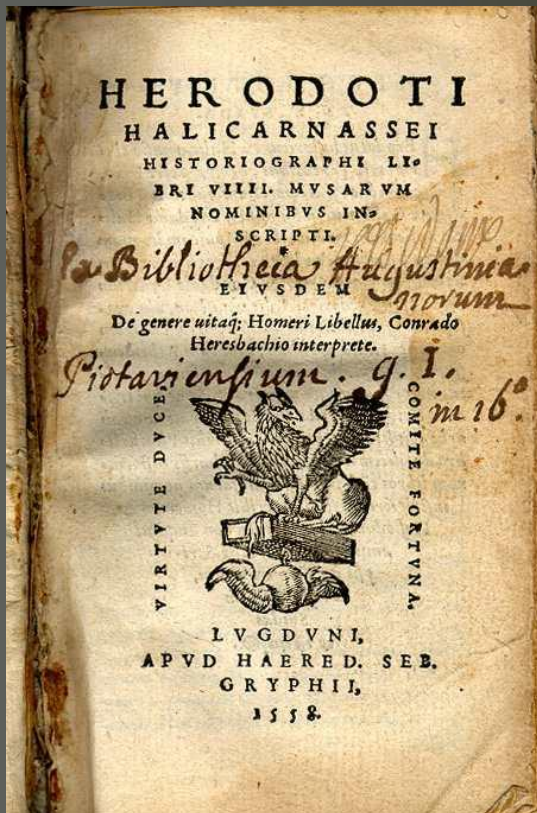 HERODOTI
HALICARNASSEI
HISTORIOGRAPHI LI-
BRI VIIII. MVSARVM
NOMINIBVS IN-
SCRIPTI.
*
Ex Bibliotheca Augustinia-
EIVSDEM
norum
De genere uitaq; Homeri Libellus, Conrado
Heresbachio interprete.
Pictaviensium. g. I.
in 16°.
VIRTVTE DVCE,
COMITE FORTVNA.
LVGDVNI,
APVD HAERED. SEB.
GRYPHII,
1558.